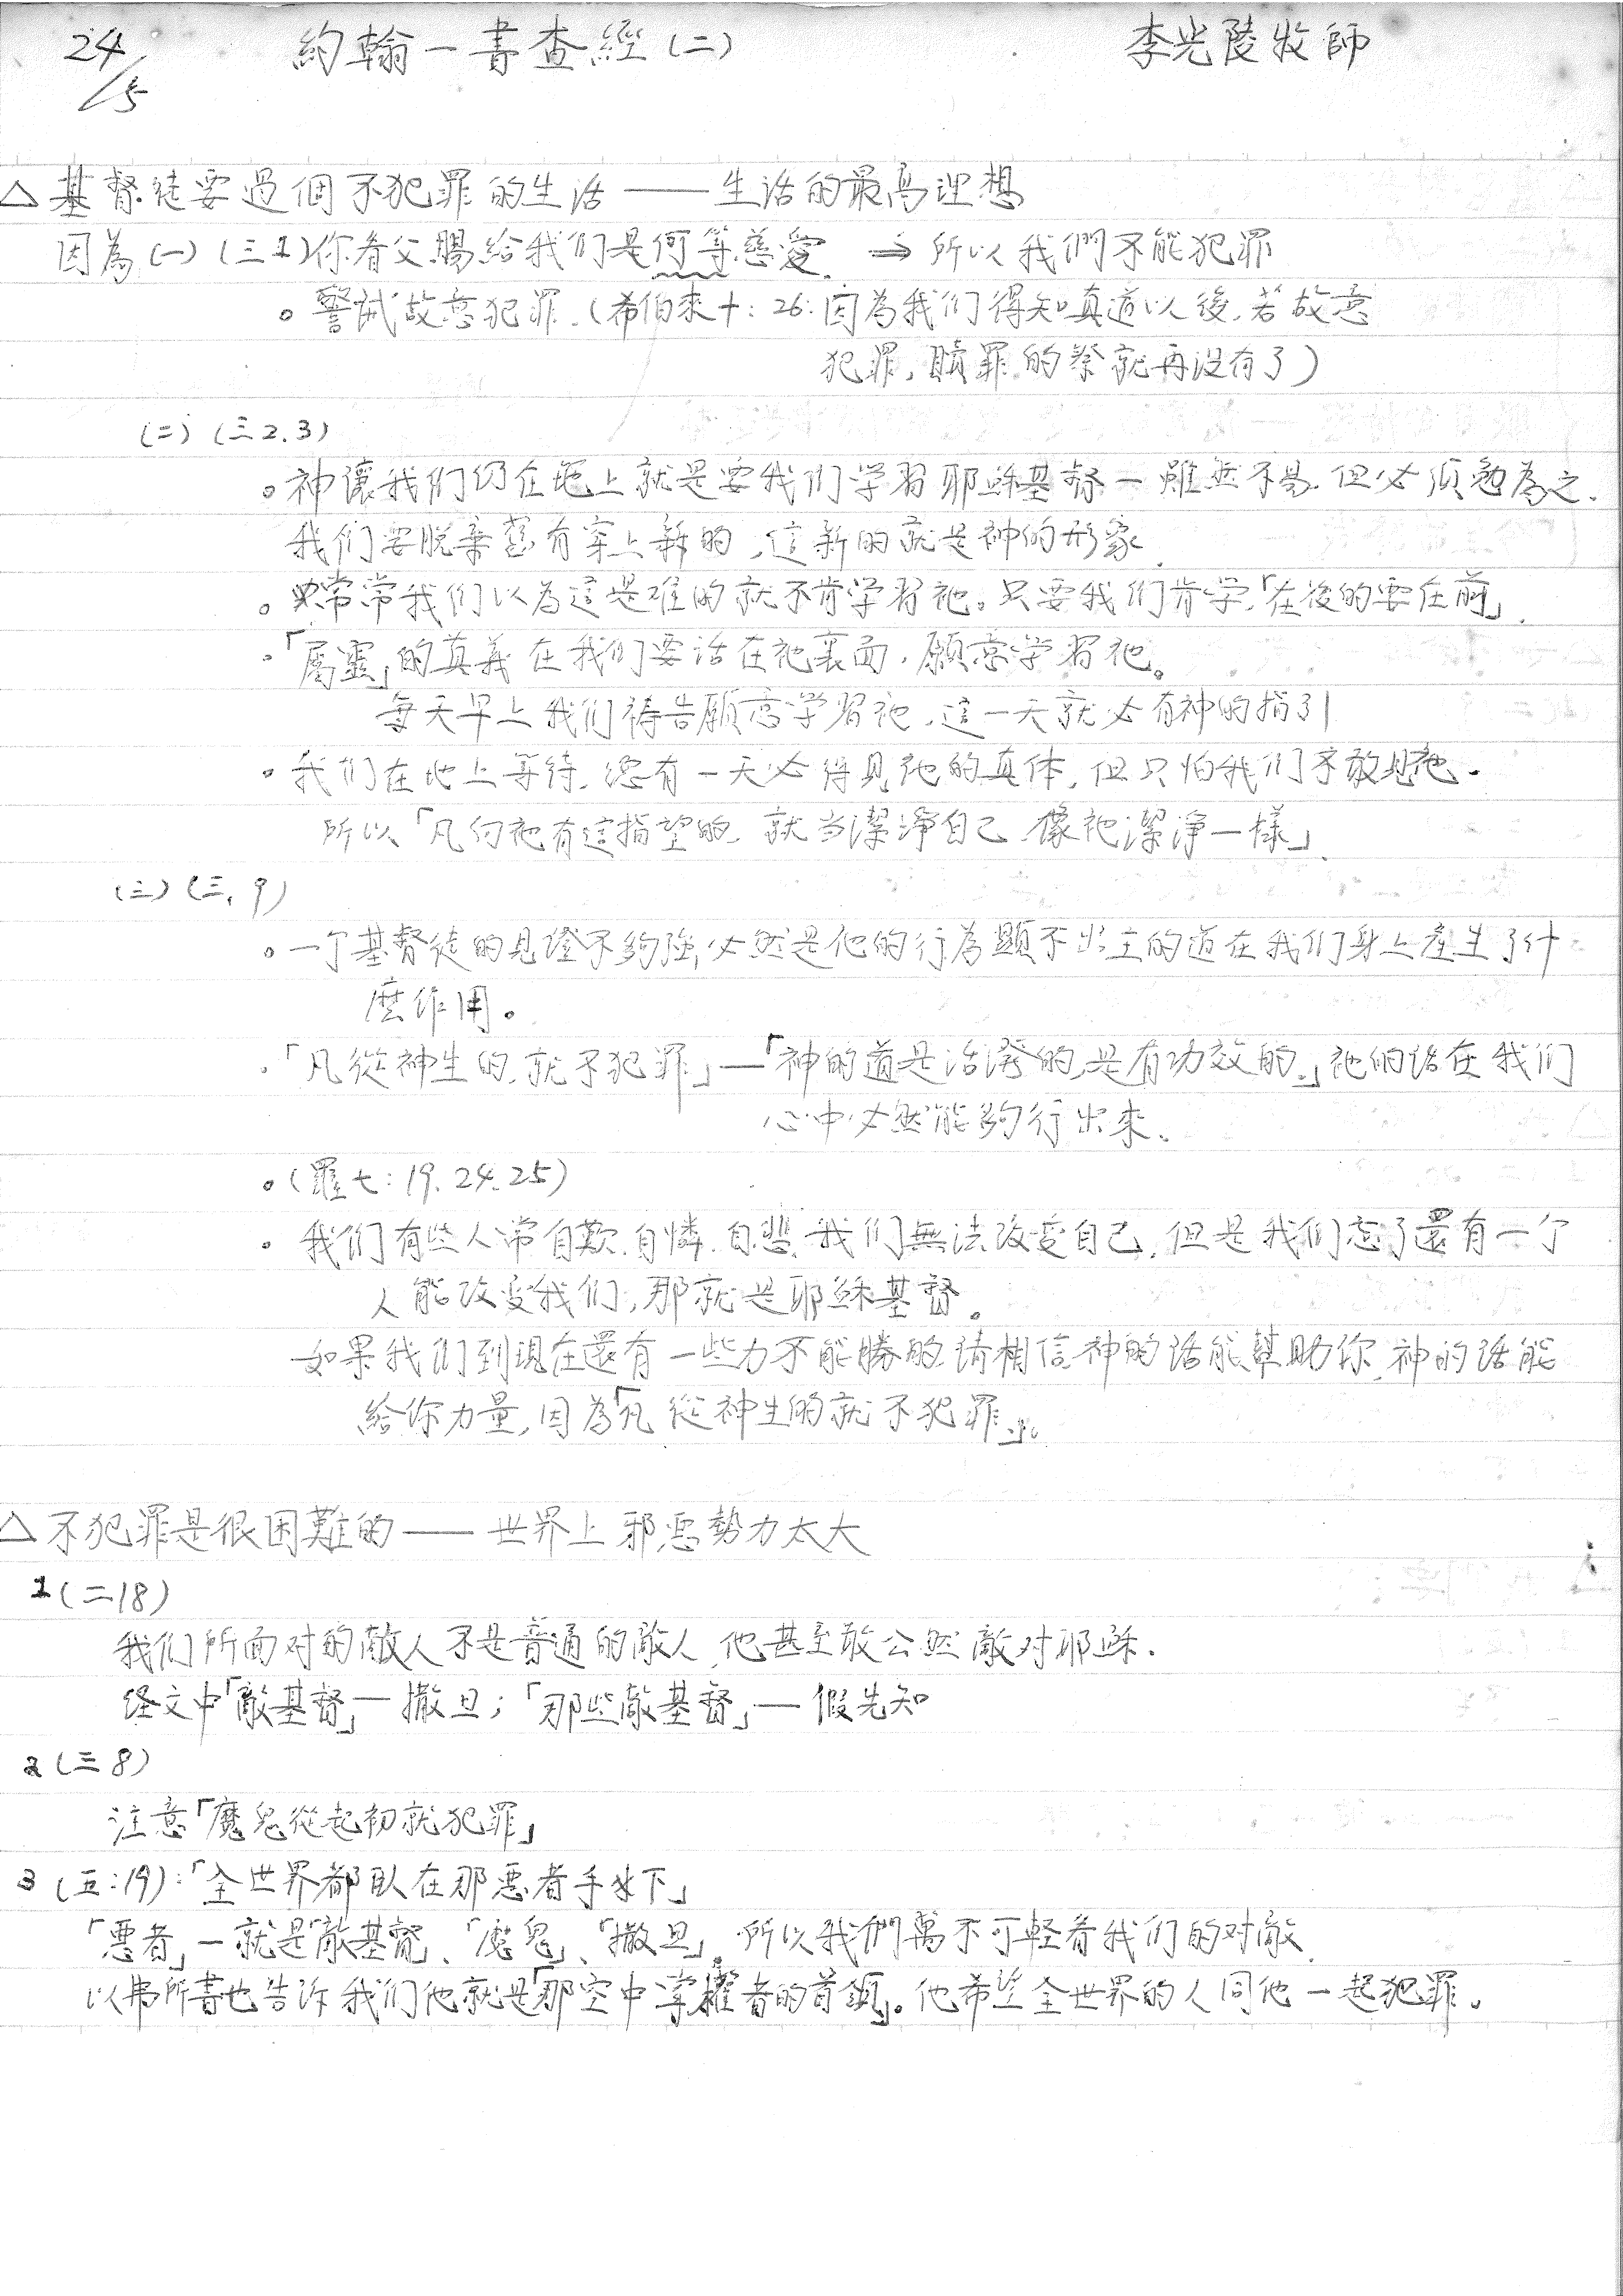 24/5 約翰一書查經(二) 李光陵牧師
△基督徒要過個不犯罪的生活——生活的最高理想
因為(一)(三1)你看父賜給我们是何等慈愛. ⇒所以我們不能犯罪
。警誡故意犯罪.(希伯來十:26:因為我们得知真道以後.若故意
犯罪,贖罪的祭就再没有了)
(二)(三2.3)
。神讓我们仍在地上就是要我们学習耶穌基督—雖然不易.但必須勉為之.
我们要脫棄舊有穿上新的,這新的就是神的形象.
。常常我们以為這是难的就不肯学習祂。只要我们肯学,「在後的要在前」.
.「屬靈」的真義在我们要活在祂裏面.願意学習祂。
每天早上我们禱告願意学習祂.這一天就必有神的指引
。我们在地上等待.總有一天必得見祂的真体,但只怕我们不敢見祂.
所以「凡向祂有這指望的.就当潔淨自己.像祂潔淨一樣」.
(三)(三,9)
。一个基督徒的見證不夠強,必然是他的行為顯不出主的道在我们身上產生了什
麽作用。
.「凡從神生的.就不犯罪」—「神的道是活潑的,是有功效的.」祂的話在我们
心中必然能夠行出來.
。(羅七:19.24.25)
。我们有些人常自歎.自憐.自悲.我们無法改变自己,但是我们忘了還有一个
人能改变我们,那就是耶穌基督。
如果我们到現在還有一些力不能勝的請相信神的話能幫助你.神的話能
給你力量,因為「凡從神生的就不犯罪」。
△不犯罪是很困難的——世界上邪惡勢力太大
1(二18)
我们所面对的敵人不是普通的敵人,他甚至敢公然敵对耶穌.
经文中「敵基督」—撒旦;「那些敵基督」—假先知
2(三8)
注意「魔鬼從起初就犯罪」
3(五:19):「全世界都臥在那惡者手下」
「惡者」—就是「敵基督」、「魔鬼」、「撒旦」。所以我們萬不可軽看我们的对敵.
以弗所書也告訴我们他就是「那空中掌權者的首領」。他希望全世界的人同他一起犯罪。